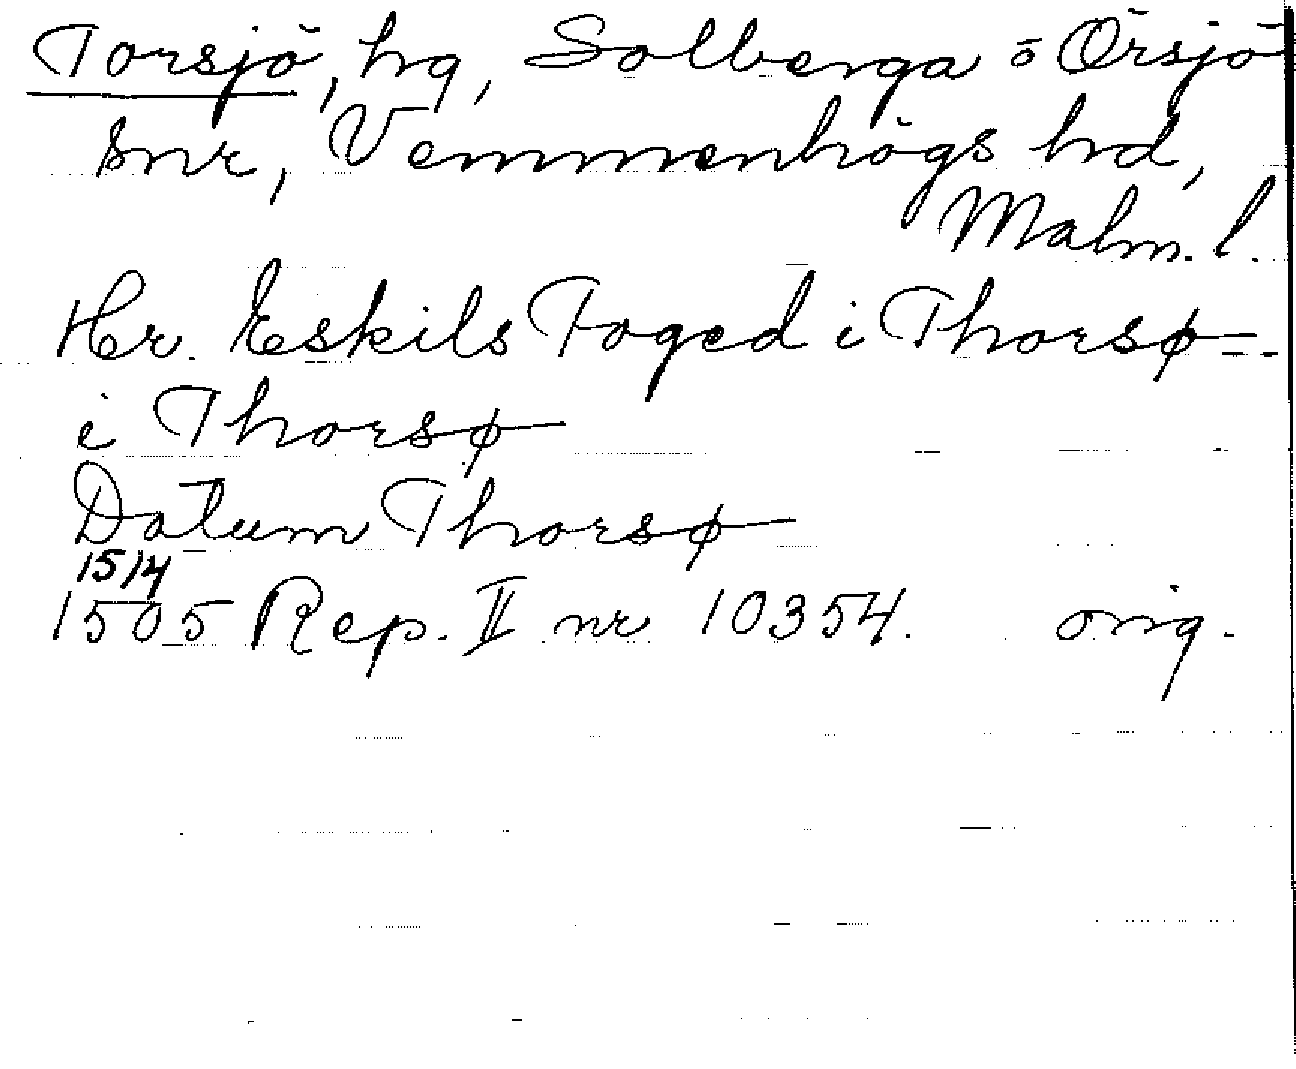 Torsjö, hg, Solberga o Örsjö
snr, Vemmenhögs hd,
Malm. l.
Hr. Eskils Foged i Thorsø
i Thorsø
Datum Thorsø
15/4
1505 Rep. II nr 10354. orig.